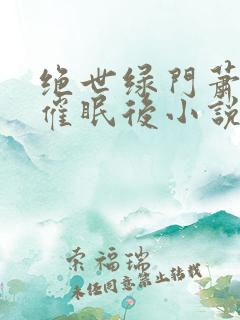 绝世绿門萧
催眠後小説
索福瑞
未经同意禁止转载